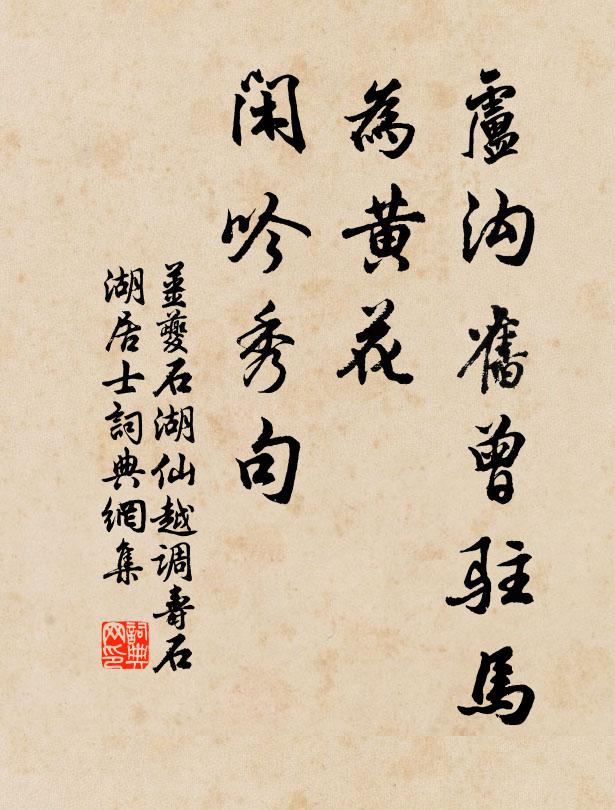 盧沟舊曾駐馬
為黃花
閑吟秀句
薑夔石湖仙越調壽石
湖居士詞典網集
詞典
网印